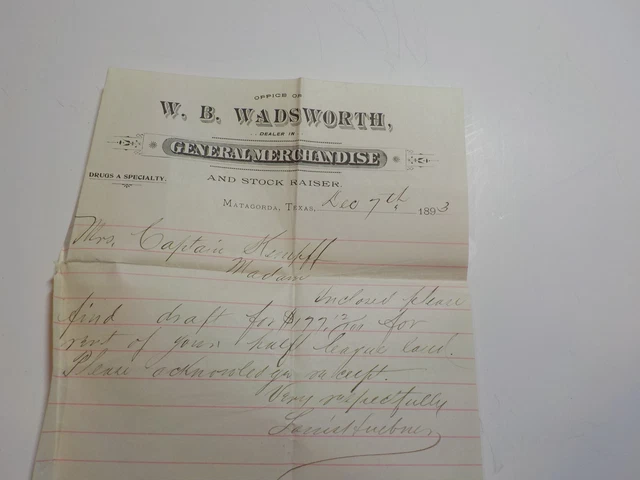 OFFICE OF
W. B. WADSWORTH,
DEALER IN
GENERAL MERCHANDISE
DRUGS A SPECIALTY.
AND STOCK RAISER.
MATAGORDA, TEXAS, Dec 7th, 1893
Mrs. Captain Kempff
Madam
Inclosed please
find draft for $177. for
rent of your half league land.
Please acknowledge receipt.
Very respectfully
Louis Huebner